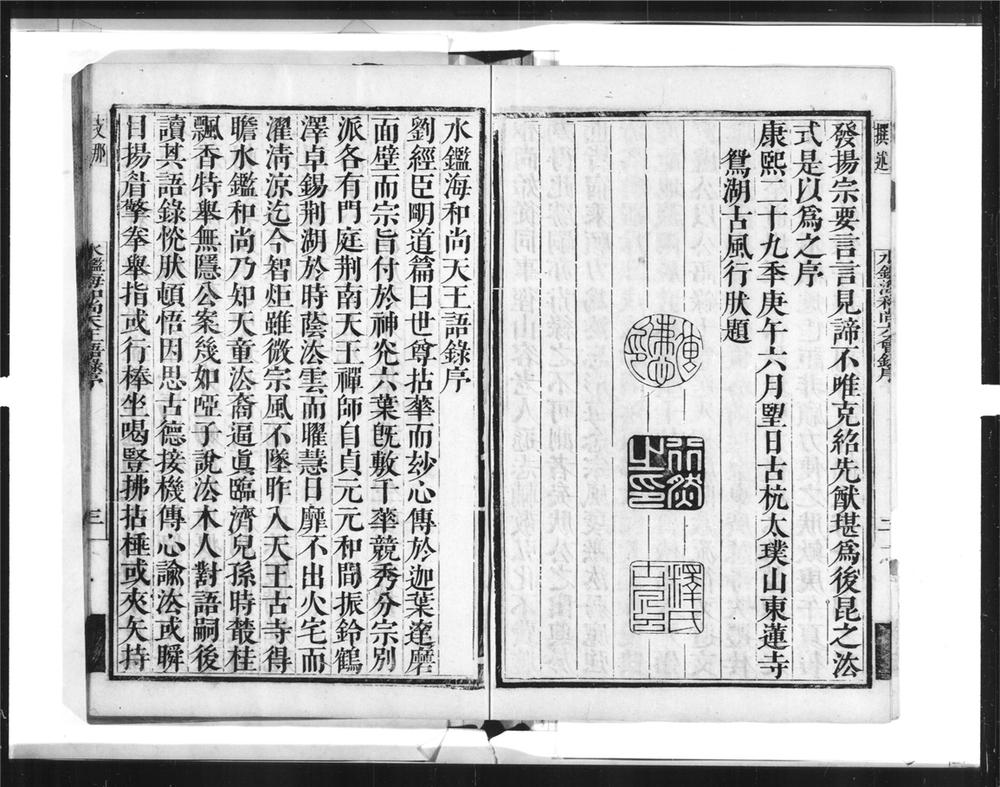 撰述
水鑑海和尚六會錄序
二
發揚宗要言言見諦不唯克紹先猷堪為後昆之㳒
式是以為之序
康熙二十九季庚午六月朢日古杭太璞山東蓮寺
鴛湖古風行肰題
釋氏
水鑑海和尚天王語錄序
劉經臣朙道篇曰世尊拈華而玅心傳於迦葉達磨
面壁而宗旨付於神灮六葉旣敷千華競秀分宗別
派各有門庭荆南天王禪師自貞元元和間振鈴鶴
澤卓錫荆湖於時蔭㳒雲而曜慧日靡不出火宅而
濯清涼迄今智炬雖微宗風不墜昨入天王古寺得
瞻水鑑和尚乃知天童㳒裔逼眞臨濟兒孫時叢桂
飄香特舉無隱公案幾如啞子說㳒木人對語嗣後
讀其語錄恍肰頓悟因思古德接機傳心諭㳒或瞬
目揚眉擎拳舉指或行棒坐喝豎拂拈棰或夾矢持
支那
水鑑海和尚天王語錄序
三